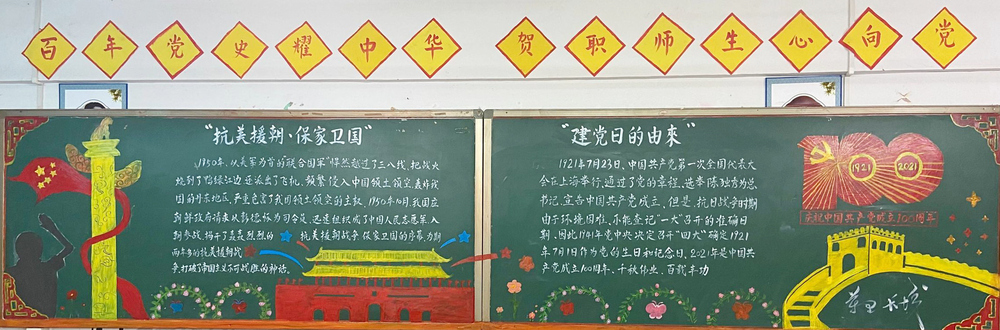 百年党史耀中华 贺职师生心向党
"抗美援朝·保家卫国"
1950年,从美军为首的联合国军"悍然越过了三八线,把战火
烧到了鸭绿江边还派出了飞机,频繁侵入中国领土领空轰炸我
国的丹东地区,严重危害了我国领土领空的主权,1950年10月,我国应
朝鲜政府请求从彭德怀为司令员,迅速组织成了中国人民志愿军入
朝参战,掀开了轰轰烈烈的 抗美援朝战争,保家卫国的序幕,为期
两年多的抗美援朝战
争,打破了帝国主义不可战胜的神话。
"建党日的由来"
1921年7月23日,中国共产党第一次全国代表大
会在上海举行,通过了党的章程,选举陈独秀为总
书记,宣告中国共产党成立,但是,抗日战争时期
由于环境困难,不能查记"一大"召开的准确日
期,因此1941年党中央决定召开"四大"确定1921
年7月1日作为党的生日和纪念日,2021年是中国共
产党成立100周年,千秋伟业,百载丰功
100
1921 2021
庆祝中国共产党成立100周年
万里长城